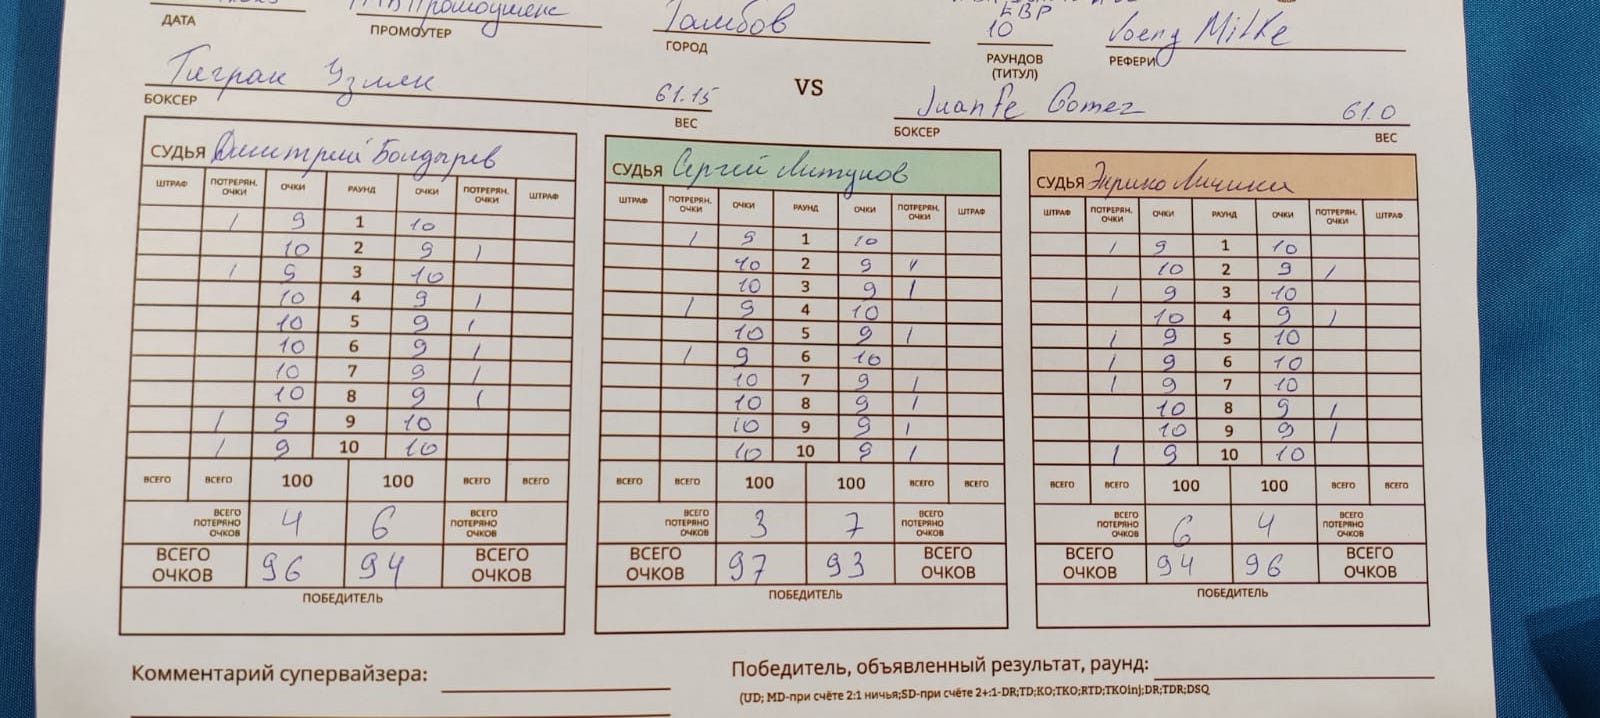 Тамбов
10
Joeng Milke
ДАТА ПРОМОУТЕР ГОРОД РАУНДОВ (ТИТУЛ) РЕФЕРИ
Тигран Узлян 61.15 VS Juan Fe Gomez 61.0
БОКСЕР ВЕС БОКСЕР ВЕС
СУДЬЯ Дмитрий Болдырев
ШТРАФ ПОТРЕРЯН. ОЧКИ ОЧКИ РАУНД ОЧКИ ПОТРЕРЯН. ОЧКИ ШТРАФ
1 9 1 10
10 2 9 1
1 9 3 10
10 4 9 1
10 5 9 1
10 6 9 1
10 7 9 1
10 8 9 1
1 9 9 10
1 9 10 10
ВСЕГО ВСЕГО 100 100 ВСЕГО ВСЕГО
ВСЕГО ПОТЕРЯНО ОЧКОВ 4 6 ВСЕГО ПОТЕРЯНО ОЧКОВ
ВСЕГО ОЧКОВ 96 94 ВСЕГО ОЧКОВ
ПОБЕДИТЕЛЬ
СУДЬЯ Сергей Литунов
ШТРАФ ПОТРЕРЯН. ОЧКИ ОЧКИ РАУНД ОЧКИ ПОТРЕРЯН. ОЧКИ ШТРАФ
1 9 1 10
10 2 9 1
10 3 9 1
1 9 4 10
10 5 9 1
1 9 6 10
10 7 9 1
10 8 9 1
10 9 9 1
10 10 9 1
ВСЕГО ВСЕГО 100 100 ВСЕГО ВСЕГО
ВСЕГО ПОТЕРЯНО ОЧКОВ 3 7 ВСЕГО ПОТЕРЯНО ОЧКОВ
ВСЕГО ОЧКОВ 97 93 ВСЕГО ОЧКОВ
ПОБЕДИТЕЛЬ
СУДЬЯ Энрико Личини
ШТРАФ ПОТРЕРЯН. ОЧКИ ОЧКИ РАУНД ОЧКИ ПОТРЕРЯН. ОЧКИ ШТРАФ
1 9 1 10
10 2 9 1
1 9 3 10
10 4 9 1
1 9 5 10
1 9 6 10
1 9 7 10
10 8 9 1
10 9 9 1
1 9 10 10
ВСЕГО ВСЕГО 100 100 ВСЕГО ВСЕГО
ВСЕГО ПОТЕРЯНО ОЧКОВ 6 4 ВСЕГО ПОТЕРЯНО ОЧКОВ
ВСЕГО ОЧКОВ 94 96 ВСЕГО ОЧКОВ
ПОБЕДИТЕЛЬ
Комментарий супервайзера:
Победитель, объявленный результат, раунд:
(UD; MD-при счёте 2:1 ничья;SD-при счёте 2+:1-DR;TD;KO;TKO;RTD;TKOinj;DR;TDR;DSQ